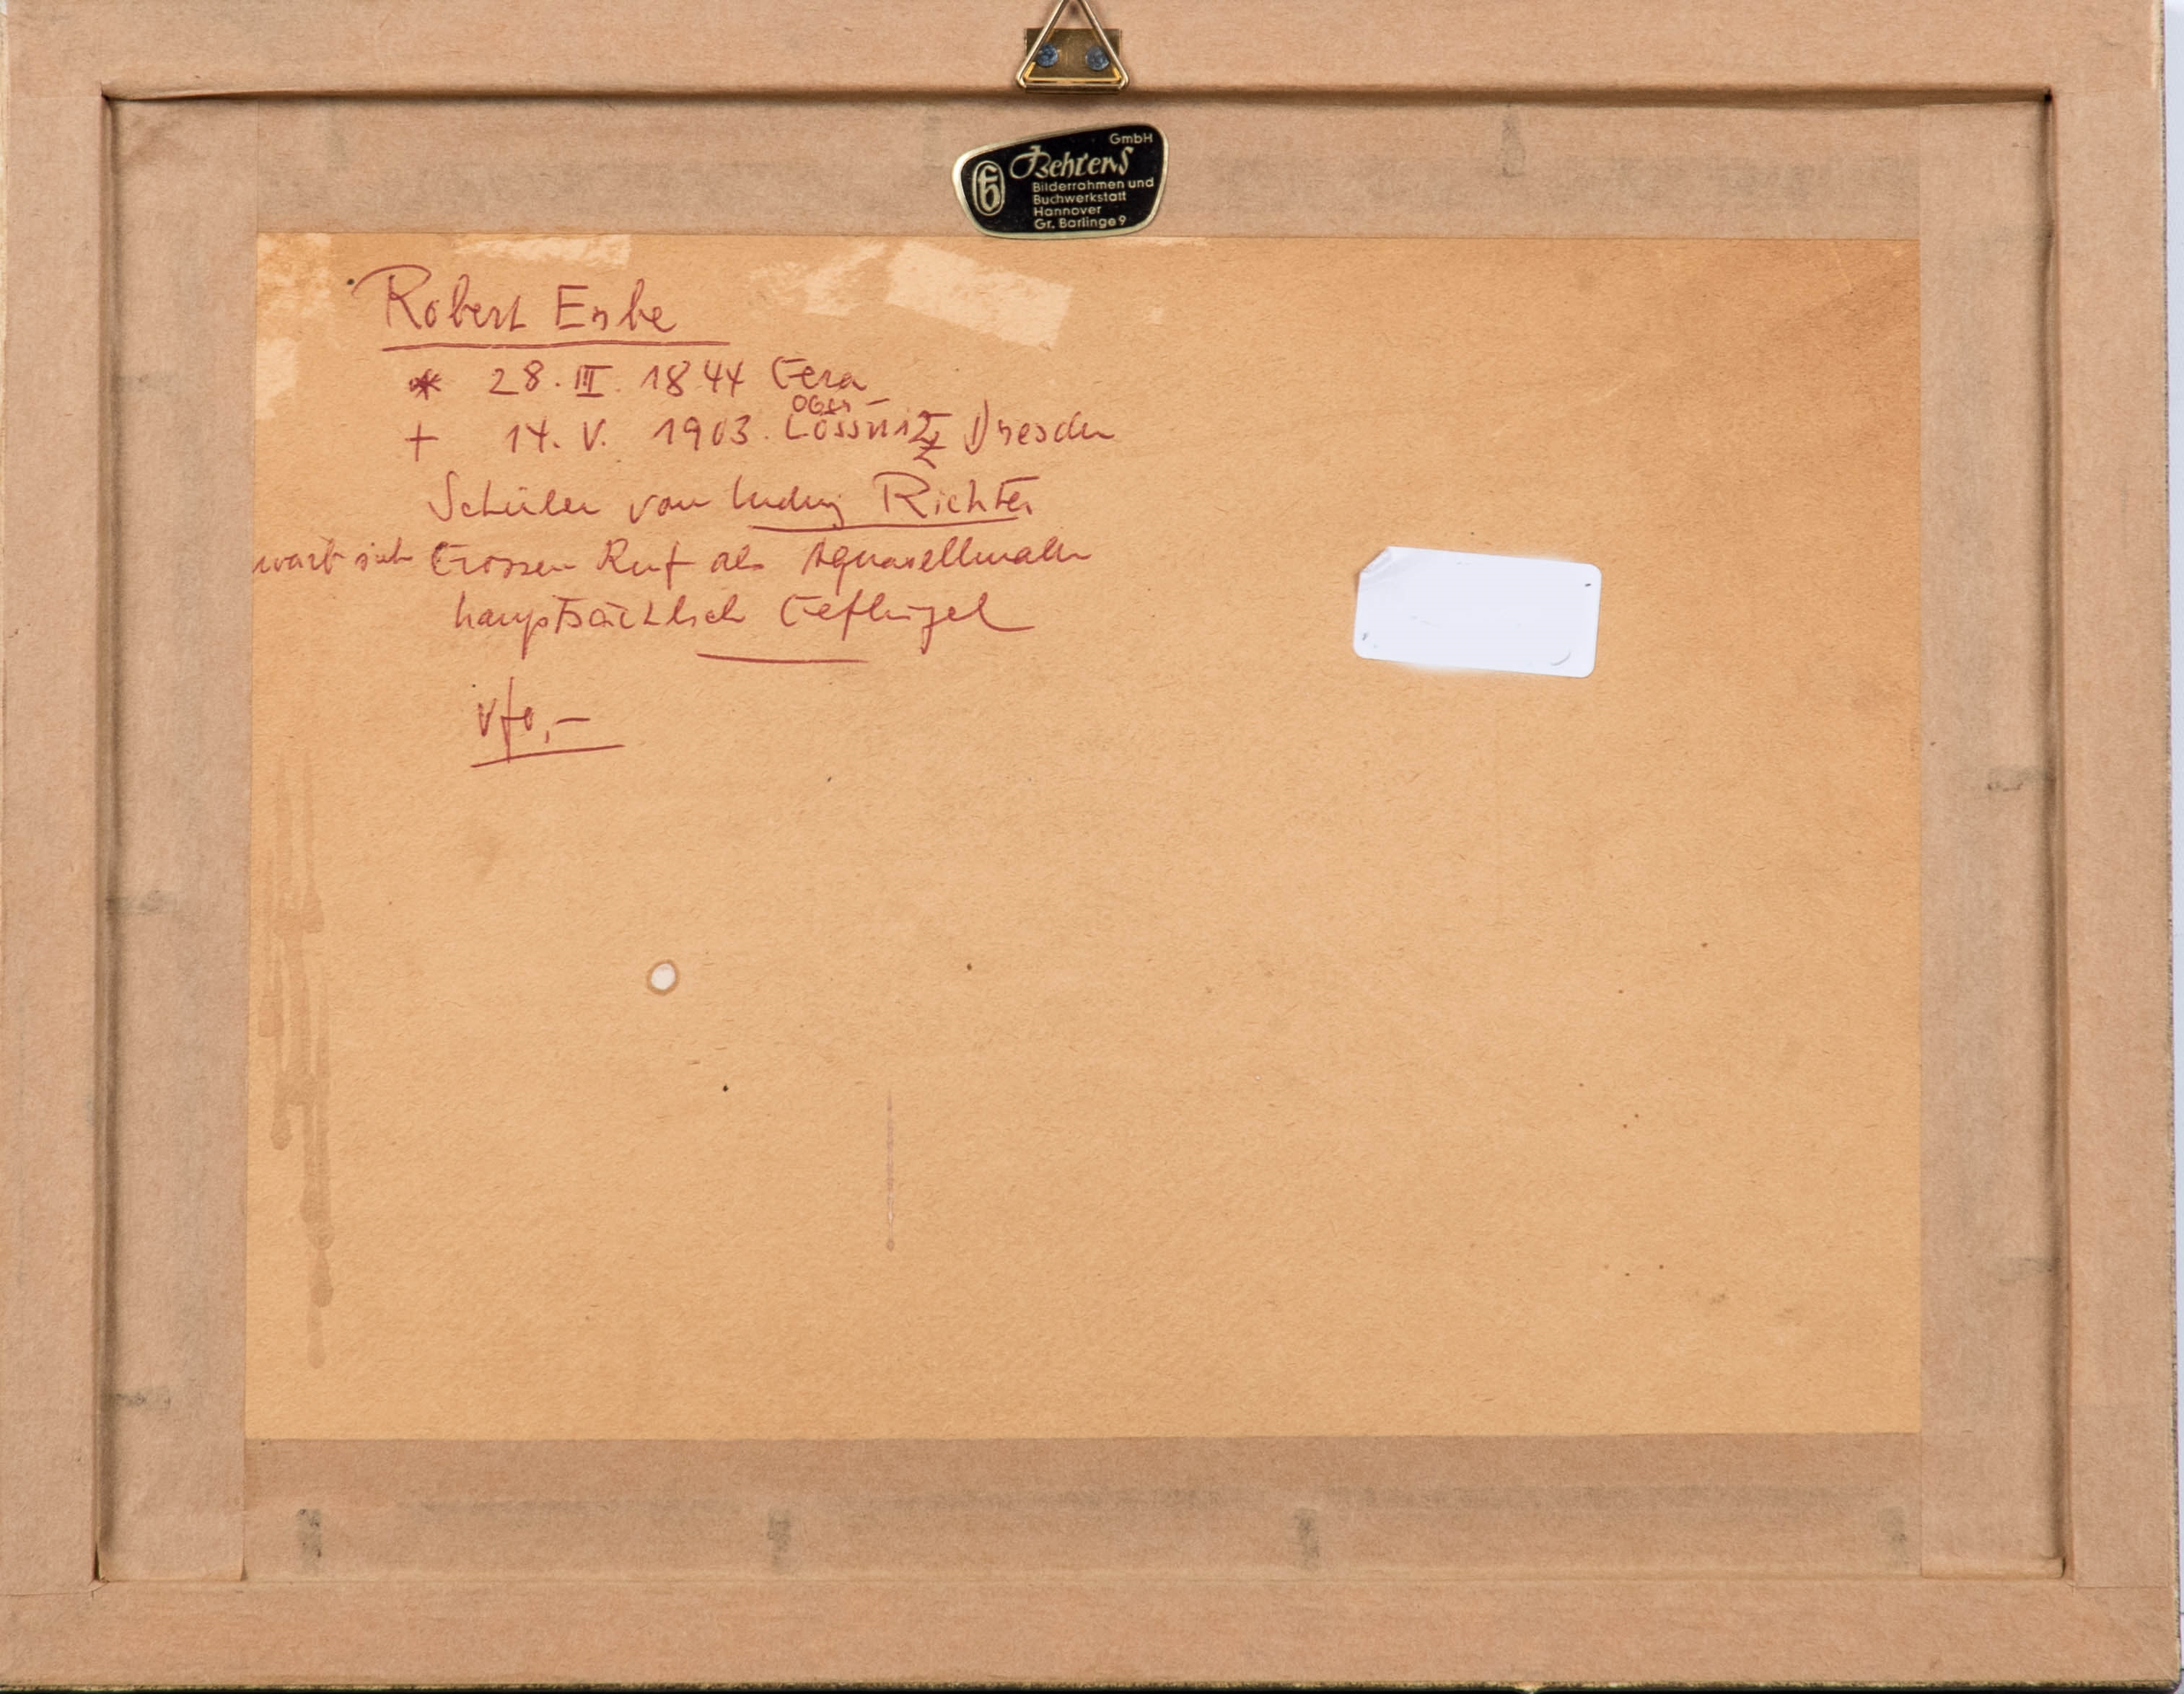 GmbH
Behrens
Bilderrahmen und
Buchwerkstatt
Hannover
Gr. Barlinge 9
Robert Erbe
* 28. III. 1844 Gera
Ober-
+ 14. V. 1903. Lössnitz Dresden
Schüler von Ludwig Richter
warb sich Grossen Ruf als Aquarellmaler
hauptsächlich Geflügel